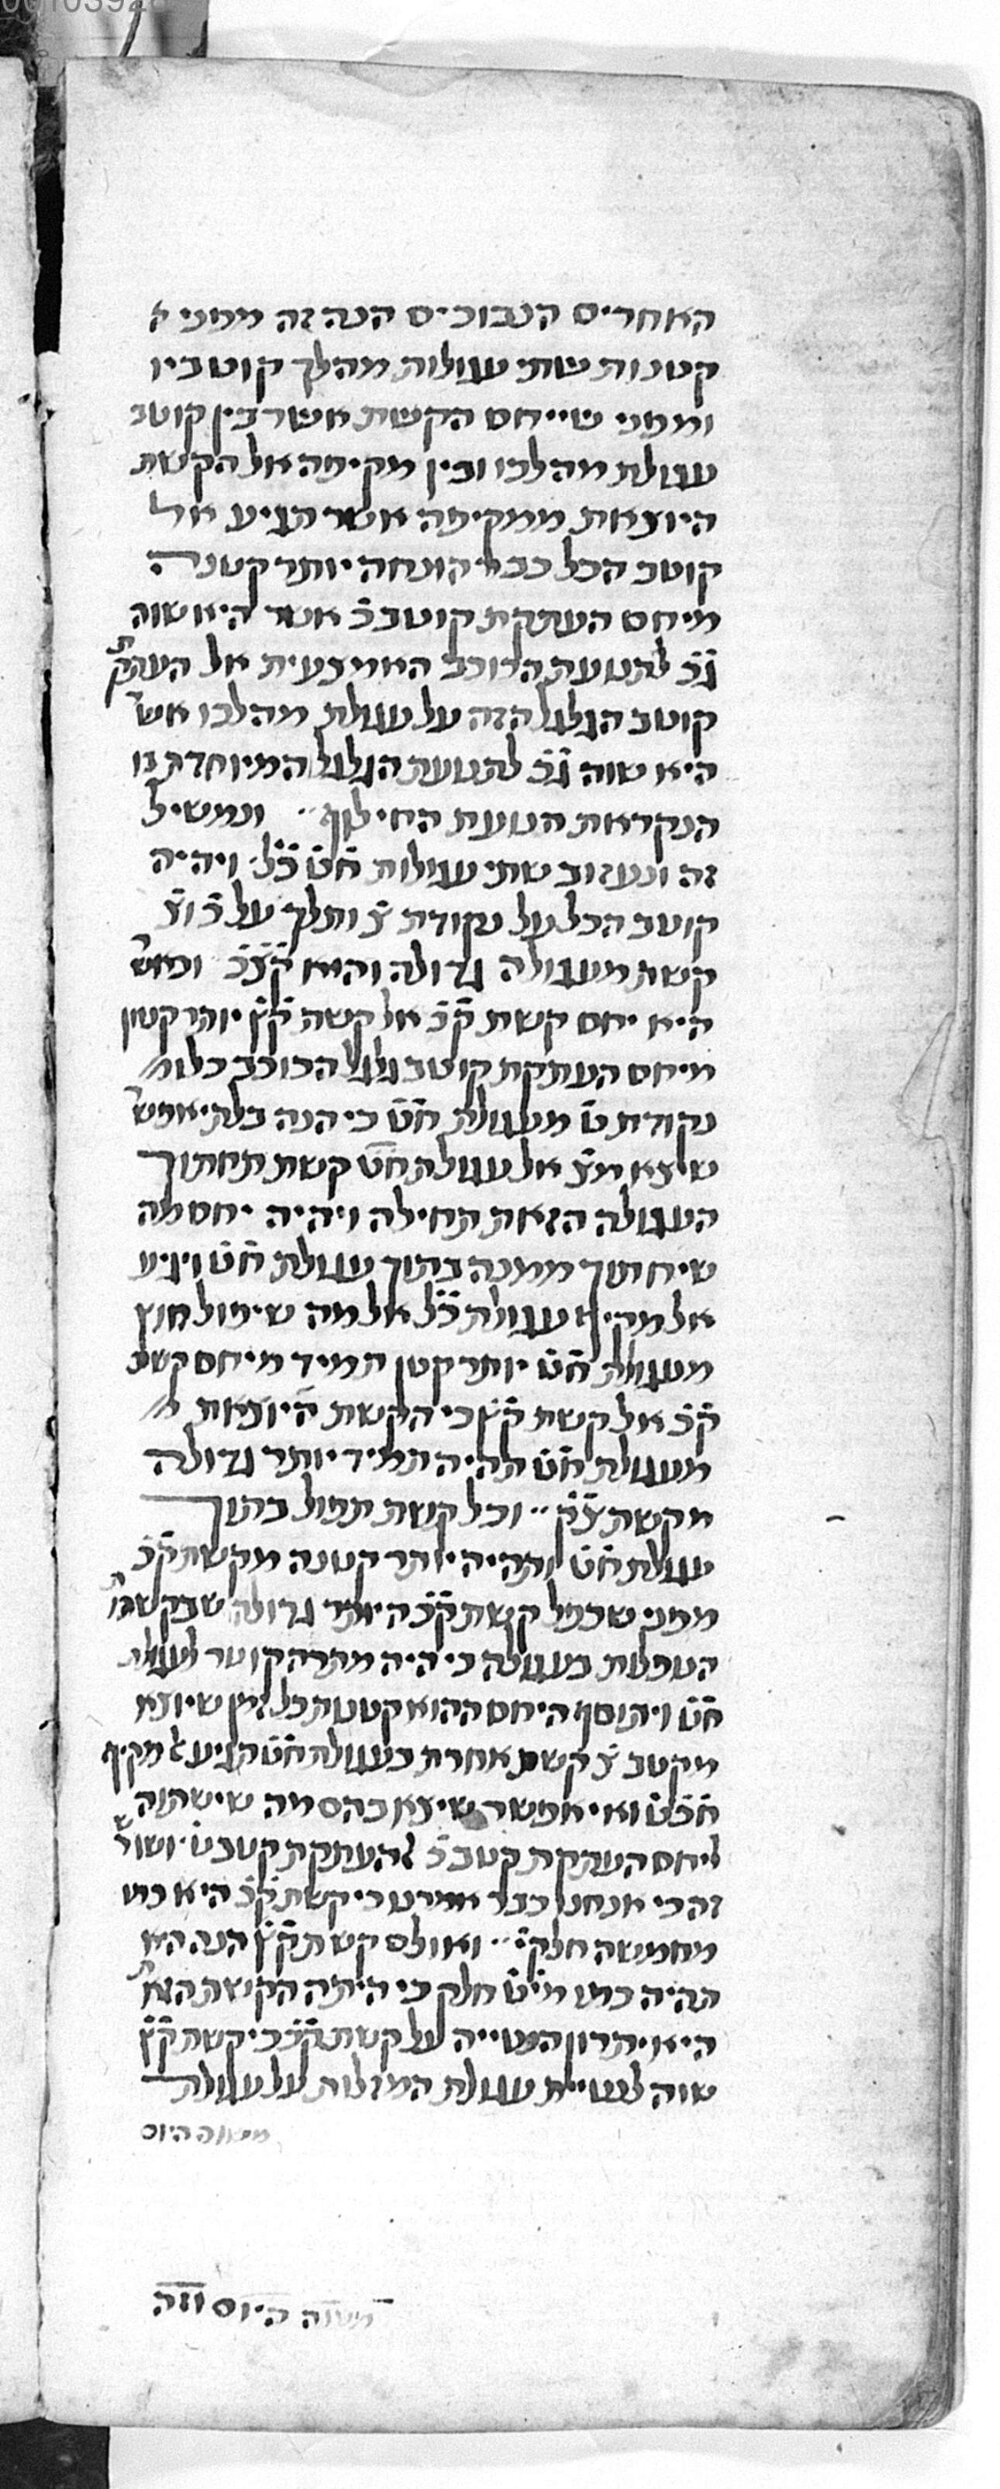 האחרים הנבוכים הנה זה מפני א
קטנות שתי עגולות מהלך קוטביו
ומפני שייחס הקשת אשר בין קוטב
עגולת מהלכו ובין מקיפה אל הקשת
היוצאת ממקיפה אשר תגיע אל
קוטב הכל כבר הונחה יותר קטנה
מיחס העתקת קוטב כ אשר היא שוה
גכ לתנועת הכוכב האמצעית אל העתקת
קוטב הגלגל הזה על עגולת מהלכו אשר
היא שוה גכ לתנועת הגלגל המיוחדת בו
הנקראת תנועת החילוף ונמשיל
זה ונעזוב שתי עגולות חט כל ויהיה
קוטב הכל על נקודת צ ותלך על כ וצ
קשת מעגולה גדולה והיא קצכ ומאשר
היא יחס קשת קכ אל קשת קצ יותר קטון
מיחס העתקת קוטב גלגל הכוכב כלומ
נקודת ט מעגולת חט כי הנה בלתי אפשר
שיצא מצ אל עגולת חט קשת תחתוך
העגולה הזאת תחילה ויהיה יחס מה
שיחתוך ממנה בתוך עגולת חט ויגיע
אל מקיף עגולת כל אל מה שיפול חוץ
מעגולת חט יותר קטן תמיד מיחס קשת
קכ אל קשת קצ כי הקשת היוצאת מ
מעגולת חט תהיה תמיד יותר גדולה
מקשת צק וכל קשת תפול בתוך
עגולת חט ותהיה יותר קטנה מקשת קכ
מפני שכפל קשת קכ היותר גדולה שבקשתות
הנופלות בעגולה כי היה מתרהקוטר לעגולת
חט ויתוסף היחס ההוא קטנות כל זמן שיוצא
מקטב צ קשת אחרת בעגולת חט תגיע למקיף
חכט ואי אפשר שיצא בהם מה שישתוה
ליחס העתקת קטב כ להעתקת קטב ט ושורש
זה כי אנחנו כבר אמרנו כי קשת קכ היא כמו
מחמשה חלקי ואולם קשת קצ הנה היא
תהיה כמו מיט חלק כי היתה הקשת הזאת
היא יתרון הנטייה על קשת קכ כי קשת קצ
שוה לנטיית עגולת המזלות על עגולת
משוה היום
משוה היום וזה